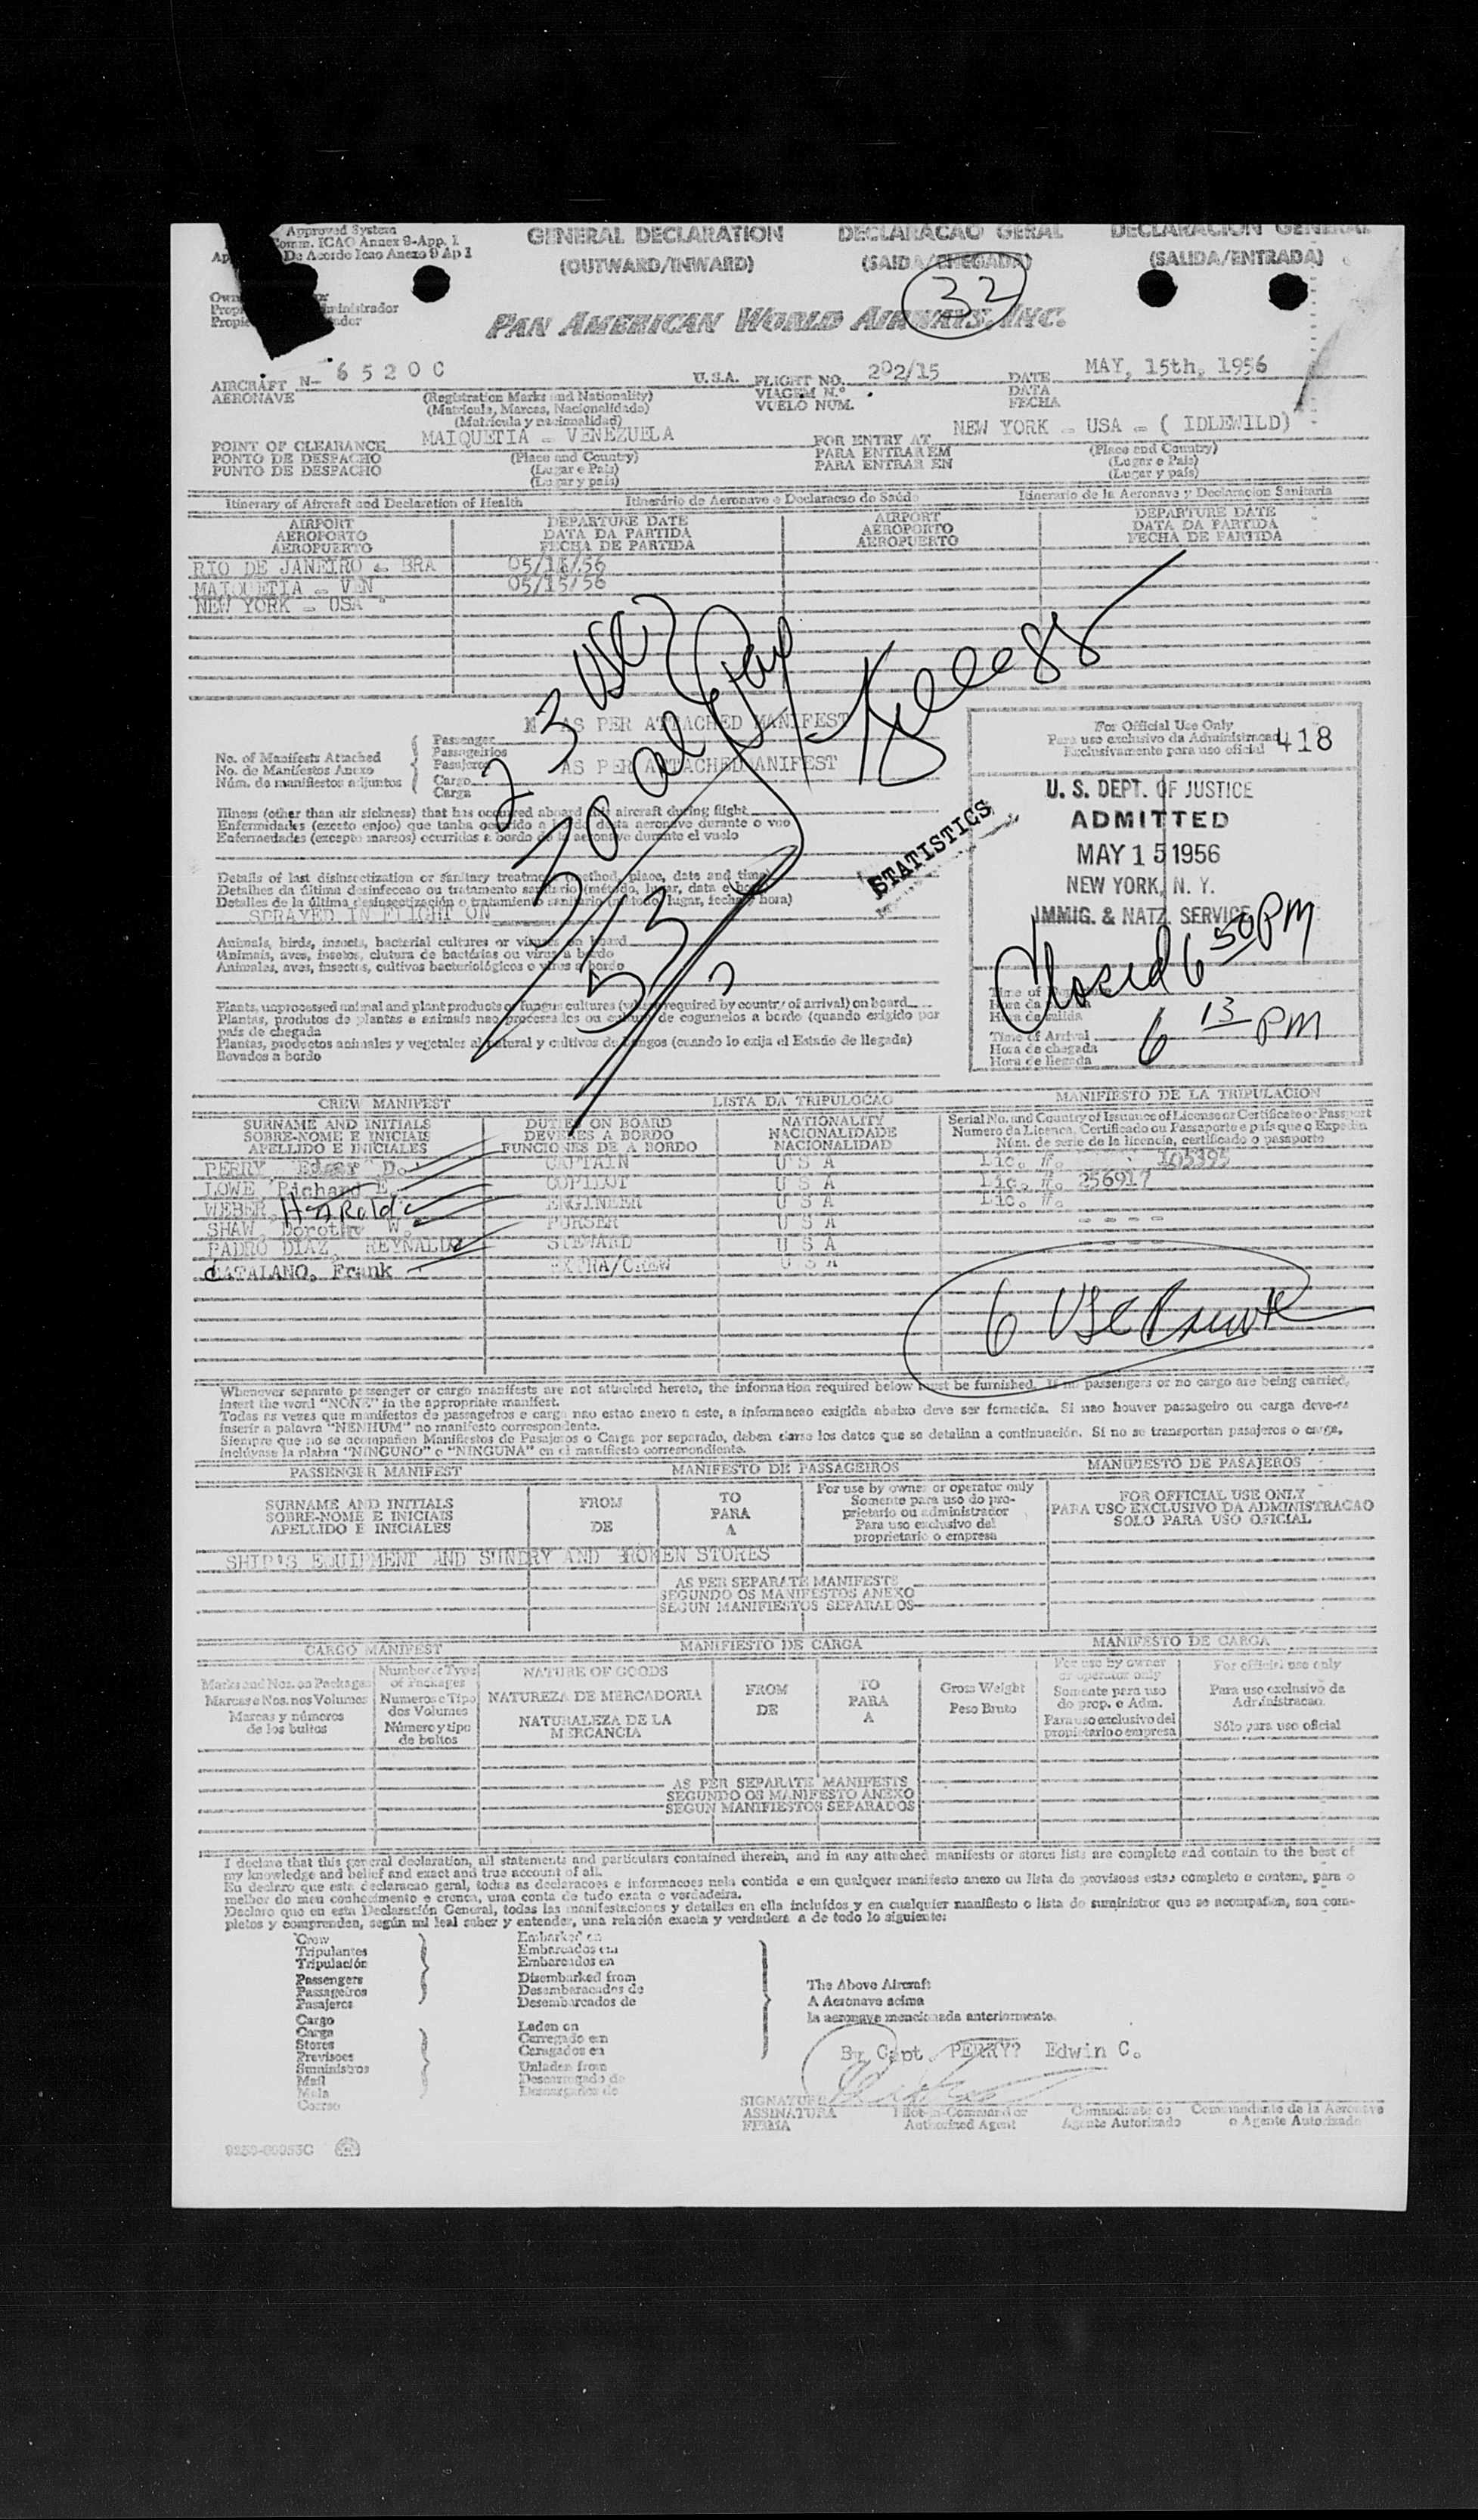 Approved System
Comm. ICAO Annex 9-App. 1
De Acordo Icao Anexo 9 Ap 1
GENERAL DECLARATION
(OUTWARD/INWARD)
DECLARACAO GERAL
(SAIDA/CHEGADA)
DECLARACION GENERAL
(SALIDA/ENTRADA)
32
PAN AMERICAN WORLD AIRWAYS, INC.
AIRCRAFT N- 6520C U.S.A. FLIGHT NO. 202/15 DATE MAY, 15th, 1956
AERONAVE (Registration Marks and Nationality) VIAGEM N.º DATA
(Matricula, Marcas, Nacionalidado) VUELO NUM. FECHA
(Matricula y nacionalidad)
POINT OF CLEARANCE MAIQUETIA - VENEZUELA FOR ENTRY AT NEW YORK - USA - ( IDLEWILD)
PONTO DE DESPACHO (Place and Country) PARA ENTRAR EM (Place and Country)
PUNTO DE DESPACHO (Lugar e Pais) PARA ENTRAR EN (Lugar e Pais)
(Lugar y país) (Lugar y país)
Itinerary of Aircraft and Declaration of Health Itinerário do Aeronave e Declaracao do Saúde Itinerario de la Aeronave y Declaracion Sanitaria
AIRPORT DEPARTURE DATE AIRPORT DEPARTURE DATE
AEROPORTO DATA DA PARTIDA AEROPORTO DATA DA PARTIDA
AEROPUERTO FECHA DE PARTIDA AEROPUERTO FECHA DE PARTIDA
RIO DE JANEIRO - BRA 05/14/56
MAIQUETIA - VEN 05/15/56
NEW YORK - USA
23 USC
30 al
AS PER ATTACHED MANIFEST
No. of Manifests Attached Passenger
No. de Manifestos Anexo Passageirios
Núm. de manifiestos adjuntos Pasajeros AS PER ATTACHED MANIFEST
Cargo
Carga
For Official Use Only
Para uso exclusivo da Administracao
Exclusivamente para uso oficial
418
U. S. DEPT. OF JUSTICE
ADMITTED
MAY 15 1956
NEW YORK, N. Y.
IMMIG. & NATZ. SERVICE
Closed 6 50 PM
STATISTICS
Illness (other than air sickness) that has occured aboard this aircraft during flight
Enfermidades (exceto enjoo) que tanha ocorrido a bordo desta aeronave durante o voo
Enfermedades (excepto mareos) ocurridas a bordo de la aeronave durante el vuelo
Details of last disinsectization or sanitary treatment (method, place, date and time)
Detalhes da última desinfeccao ou tratamento sanitario (método, lugar, data e hora)
Detalles de la última desinsectización o tratamiento sanitario (método, lugar, fecha y hora)
SPRAYED IN FLIGHT ON
53
Animals, birds, insects, bacterial cultures or viruses on board
Animais, aves, insetos, clutura de bactérias ou virus a bordo
Animales, aves, insectos, cultivos bacteriológicos o virus a bordo
Plants, unprocessed animal and plant products or fungus cultures (when required by country of arrival) on board
Plantas, produtos de plantas e animais nao processados ou cultura de cogumelos a bordo (quando exigido por
pais de chegada
Plantas, productos animales y vegetales al natural y cultivos de hongos (cuando lo exija el Estado de llegada)
llevados a bordo
Hora de salida
Time of Arrival 6 13 PM
Hora de chegada
Hora de llegada
CREW MANIFEST LISTA DA TRIPULOCAO MANIFIESTO DE LA TRIPULACION
SURNAME AND INITIALS DUTIES ON BOARD NATIONALITY Serial No. and Country of Issuance of License or Certificate or Passport
SOBRE-NOME E INICIAIS DEVERES A BORDO NACIONALIDADE Numero da Licenca, Certificado ou Passaporte e pais que o Expediu
APELLIDO E INICIALES FUNCIONES DE A BORDO NACIONALIDAD Núm. de serie de la licencia, certificado o pasaporte
PERRY, D. CAPTAIN U S A Lic. #. 105395
LOWE, Richard E. COPILOT U S A Lic. #. 256917
WEBER, Harold ENGINEER U S A Lic. #.
SHAW, Dorothy W. PURSER U S A - - - -
PADRO DIAZ, REYNALDO STEWARD U S A - - - -
CATALANO, Frank EXTRA/CREW U S A
6 USC
Whenever separate passenger or cargo manifests are not attached hereto, the information required below must be furnished. If no passengers or no cargo are being carried,
insert the word "NONE" in the appropriate manifest.
Todas as vezes que manifestos de passageiros e carga nao estao anexo a este, a informacao exigida abaixo deve ser fornecida. Si nao houver passageiro ou carga deve-se
inserir a palavra "NENHUM" no manifesto correspondente.
Siempre que no se acompañen Manifiestos de Pasajeros o Carga por separado, deben darse los datos que se detallan a continuación. Si no se transportan pasajeros o carga,
inclúyase la plabra "NINGUNO" o "NINGUNA" en el manifiesto correspondiente.
PASSENGER MANIFEST MANIFESTO DE PASSAGEIROS MANIFIESTO DE PASAJEROS
SURNAME AND INITIALS FROM TO For use by owner or operator only FOR OFFICIAL USE ONLY
SOBRE-NOME E INICIAIS DE PARA Somente para uso do pro- PARA USO EXCLUSIVO DA ADMINISTRACAO
APELLIDO E INICIALES A prietario ou administrador SOLO PARA USO OFICIAL
Para uso exclusivo del
proprietario o empresa
SHIP'S EQUIPMENT AND SUNDRY AND BROKEN STORES
AS PER SEPARATE MANIFESTS
SEGUNDO OS MANIFESTOS ANEXO
SEGUN MANIFIESTOS SEPARADOS
CARGO MANIFEST MANIFIESTO DE CARGA MANIFESTO DE CARGA
Marks and Nos. on Packages Number & Type of Packages NATURE OF GOODS FROM TO Gross Weight For use by owner or operator only For official use only
Marcas e Nos. nos Volumes Numeros e Tipo dos Volumes NATUREZA DE MERCADORIA DE PARA Peso Bruto Somente para uso do prop. o Adm. Para uso exclusivo da Administracao.
Marcas y números de los bultos Número y tipo de bultos NATURALEZA DE LA MERCANCIA A Para uso exclusivo del propietario o empresa Sólo para uso oficial
AS PER SEPARATE MANIFESTS
SEGUNDO OS MANIFESTO ANEXO
SEGUN MANIFIESTOS SEPARADOS
I declare that this general declaration, all statements and particulars contained therein, and in any attached manifests or stores lists are complete and contain to the best of
my knowledge and belief and exact and true account of all.
Eu declaro que esta declaracao geral, todas as declaracoes e informacoes nela contida e em qualquer manifesto anexo ou lista de provisoes estas completo e contem, para o
melhor do meu conhecimento e crenca, uma conta de tudo exata e verdadeira.
Declaro que en esta Declaración General, todas las manifestaciones y detalles en ella incluídos y en cualquier manifiesto o lista de suministror que se acompañen, son com-
pletos y comprenden, según mi leal saber y entender, una relación exacta y verdadera a de todo lo siguiente:
Crew Embarked on
Tripulantes Embarcados em
Tripulación Embarcados en
Passengers Disembarked from
Passageiros Desembaracados de
Pasajeros Desembarcados de
The Above Aircraft
A Aeronave acima
la aeronave mencionada anteriormente.
Cargo Laden on
Carga Carregado em
Stores Caragados en
Previsoes Unladen from
Suministros Descarregado de
Mail Descargados de
Mala
Correo
By Capt. PERRY? Edwin C.
SIGNATURE Pilot-in-Command or Comandante ou Commandante de la Aeronave
ASSINATURA Authorized Agent Agente Autorizado o Agente Autorizado
FIRMA